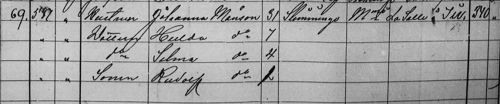 69. 537 " Hustrun Johanna Månson 31 Slemminge M La Salle Ill. 340
" " Dottern Hulda do 7
" " do Selma do 4
" " Sonen Rudolf do 2